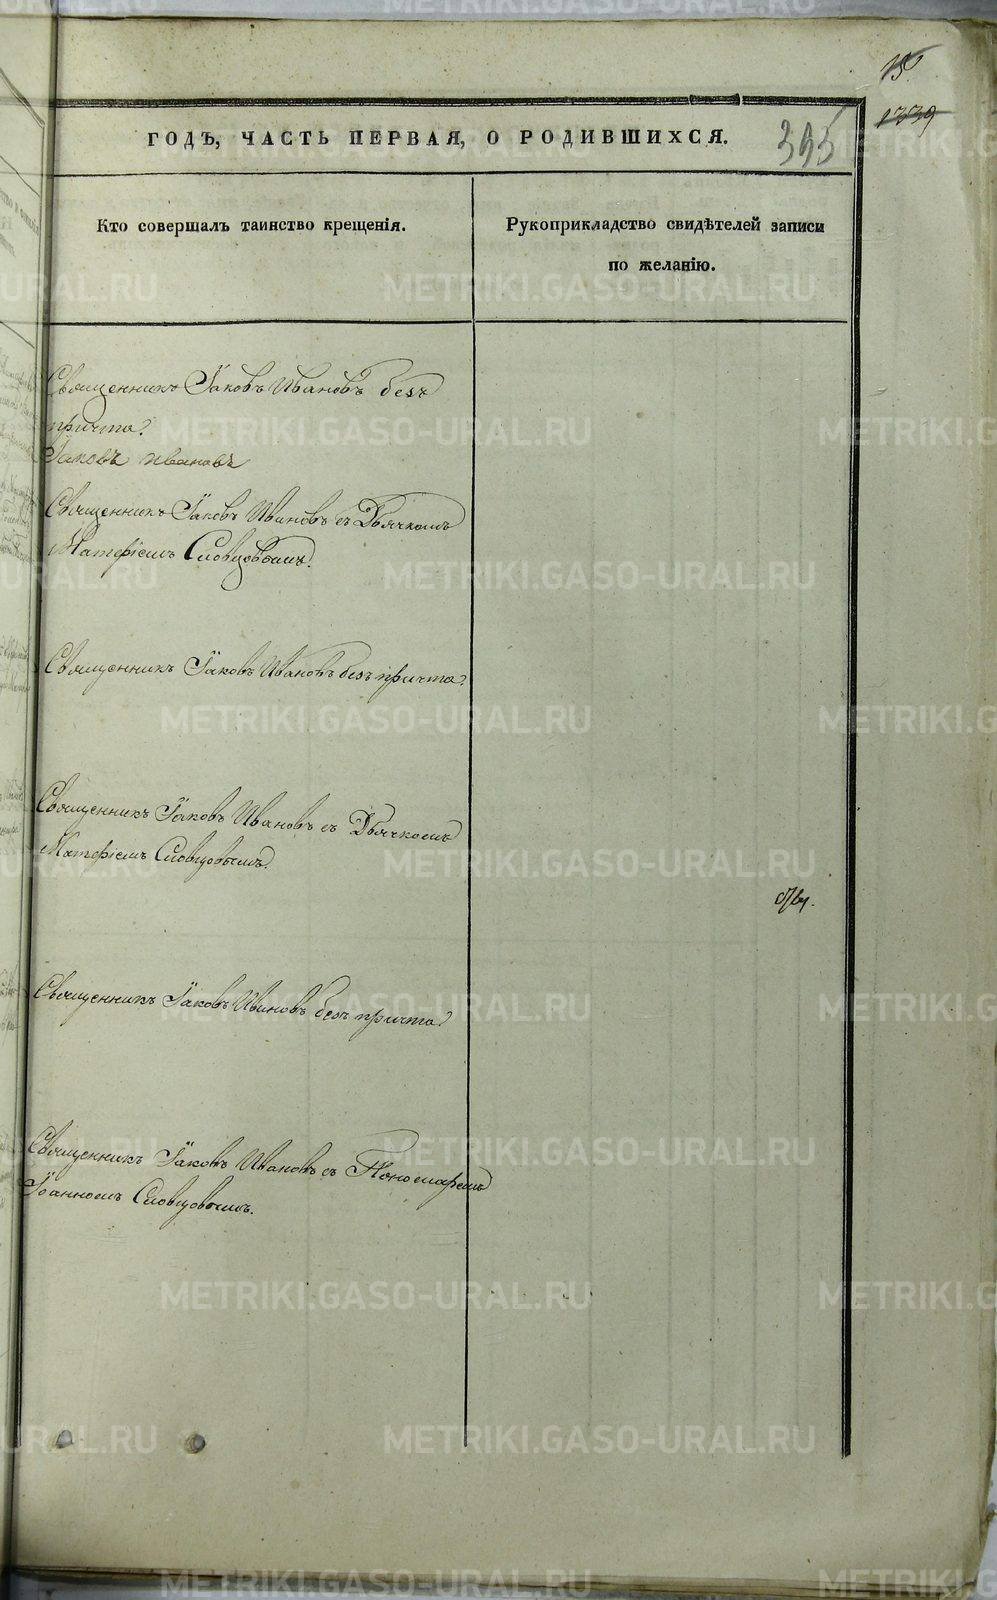 1339
ГОДЪ, ЧАСТЬ ПЕРВАЯ, О РОДИВШИХСЯ.
Кто совершалъ таинство крещенія.
Рукоприкладство свидѣтелей записи
по желанію.
Священникъ Іаковъ Ивановъ безъ
причта.
Іаковъ Ивановъ
Священникъ Іаковъ Ивановъ съ Дьячкомъ
Матфіемъ Словцовымъ.
Священникъ Іаковъ Ивановъ безъ причта.
Священникъ Іаковъ Ивановъ съ Дьячкомъ
Матфіемъ Словцовымъ.
Священникъ Іаковъ Ивановъ безъ причта.
Священникъ Іаковъ Ивановъ съ Пономаремъ
Іоанномъ Словцовымъ.
METRIKI.GASO-URAL.RU